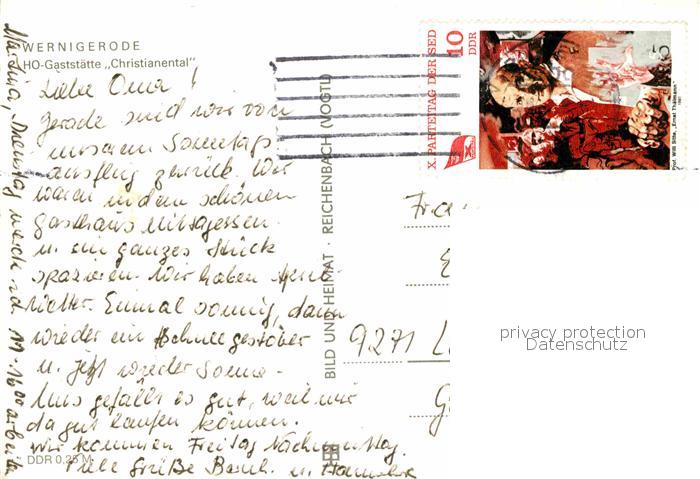 WERNIGERODE
HO-Gaststätte „Christianental"
Liebe Oma!
gerade sind wir von
unserem Sonntags-
ausflug zurück. Wir
waren in dem schönen
Gasthaus Mittagessen
u. ein ganzes Stück
spazieren. Wir haben April-
wetter. Einmal sonnig, dann
wieder ein Schneegestöber
u. jetzt wieder Sonne.
Uns gefällt es gut, weil wir
da gut laufen können.
Wir kommen Freitag Nachmittag.
Viele Grüße u.
DDR 0,25 M
Dienstag
BILD UND HEIMAT · REICHENBACH (VOGTL)
X. PARTEITAG DER SED
10
DDR
Prof. Willi Sitte, „Ernst Thälmann"
1981
9271
privacy protection
Datenschutz